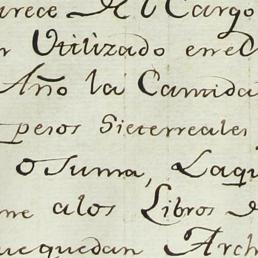 arece del Cargo
r Utilizado enel
Año la Camida
pesos Sieterreales
o Suma, Laqu
me alos Libros d
uequedan Arch